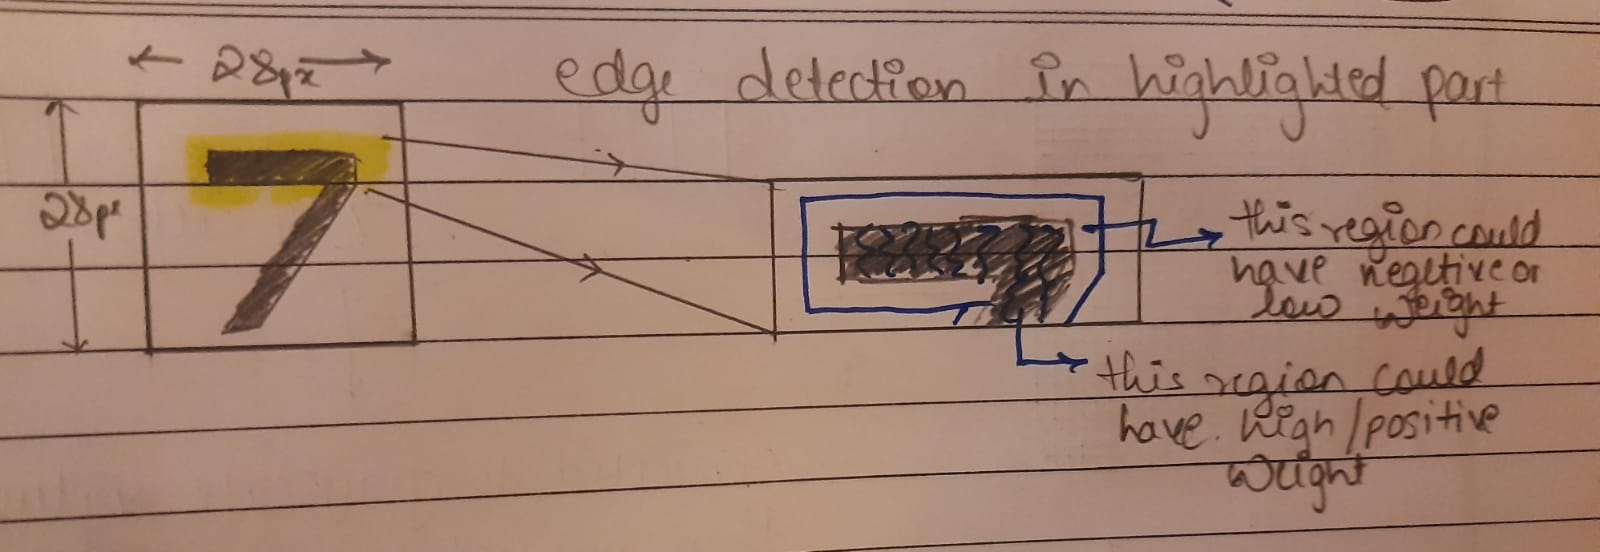 28px
edge detection in highlighted part
28px
this region could
have negetive or
low weight
this region could
have. high/positive
weight